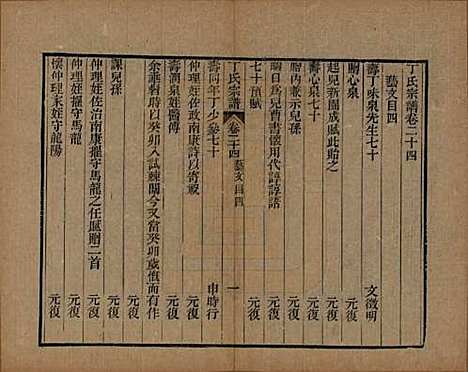 丁氏宗譜卷二十四
藝文目四
壽丁味泉先生七十 文徵明
贈心泉 元復
起兒新園成賦此貽之 元復
壽心泉七十 元復
晦內兼示兒孫 元復
晦日為兒曹書懷用代諄諄語 元復
七十預賦 元復
丁氏宗譜 卷二十四 藝文目四 一
壽同年丁少參七十 申時行
仲理姪佐政南康詩以寄載 元復
壽澗泉姪醫傅 元復
余誕有時以癸卯入試棘闈今又當癸卯歲慨而有作 元復
課兒孫 元復
仲理姪佐治南康擢守馬龍之任賦贈二首 元復
懷仲理末姪守龍陽 元復